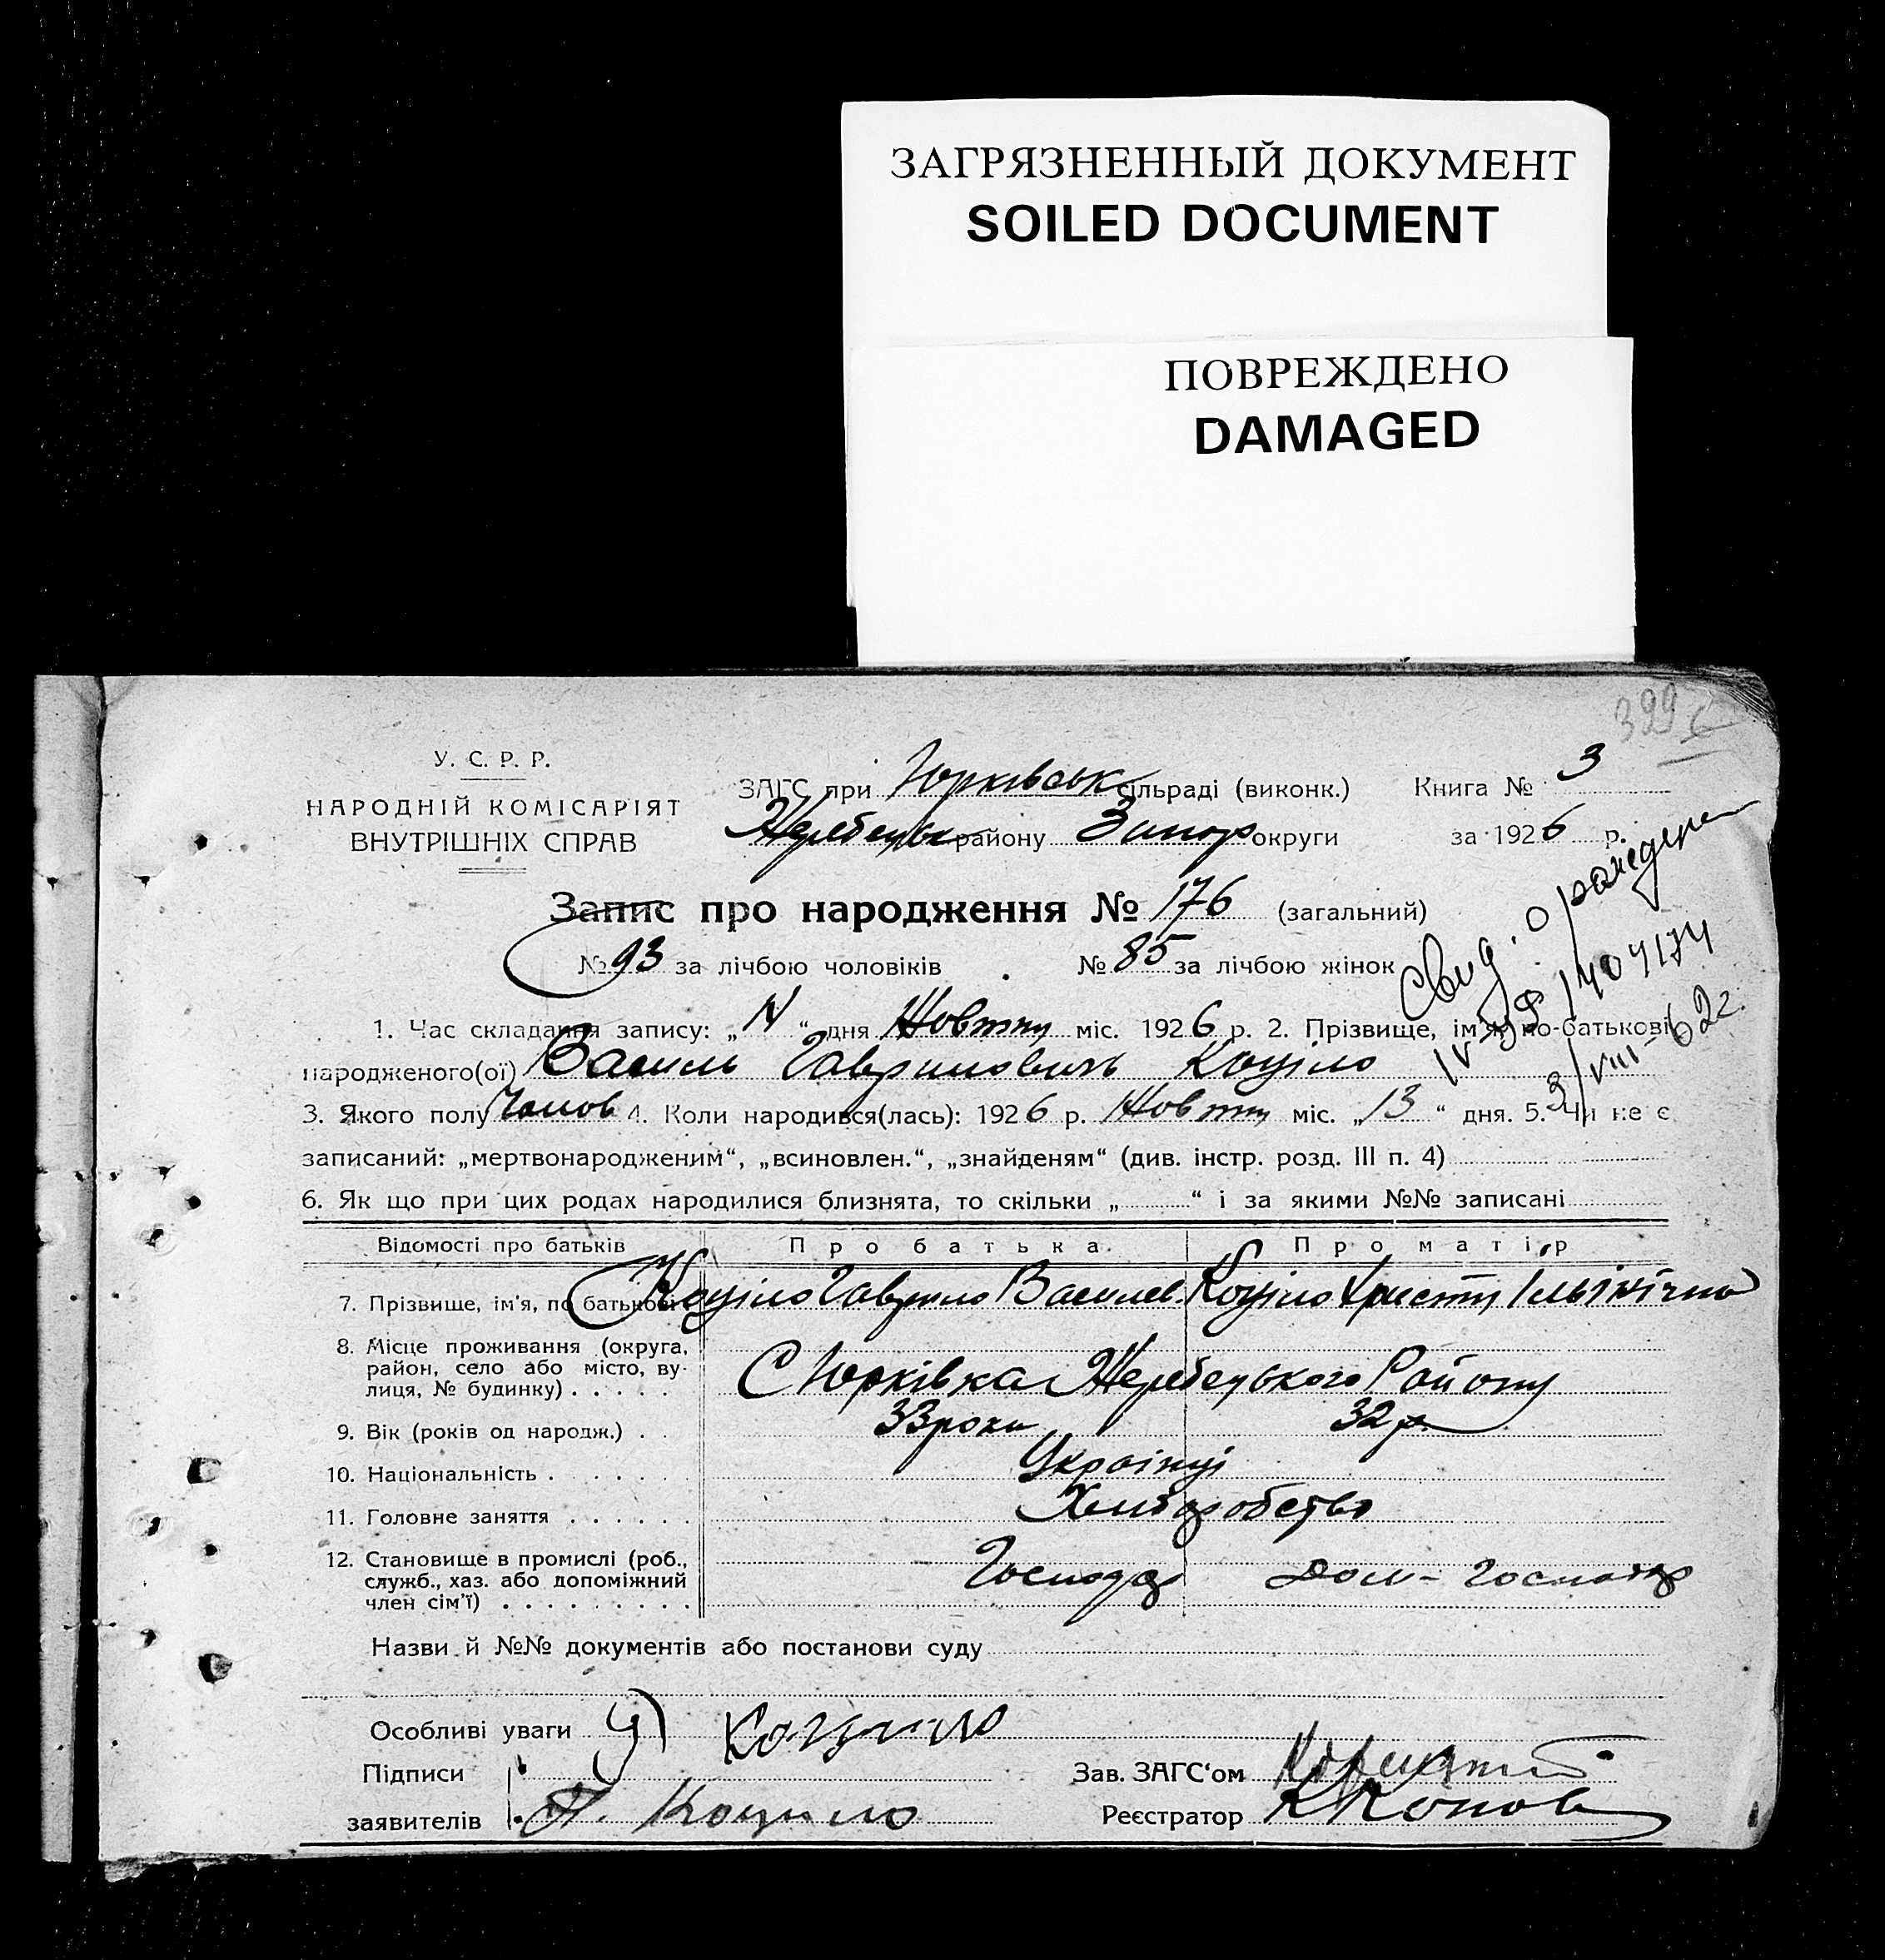 ЗАГРЯЗНЕННЫЙ ДОКУМЕНТ
SOILED DOCUMENT
ПОВРЕЖДЕНО
DAMAGED
399
У. С. Р. Р.
НАРОДНІЙ КОМІСАР'ІЯТ
ВНУТРІШНІХ СПРАВ
ЗАГС при Юрківськ сільраді (виконк.) Книга № 3
Жеребецьк району Запор округи за 1926 р.
Запис про народження № 176 (загальний)
№ 93 за лічбою чоловіків № 85 за лічбою жінок
Свид. о рождении
IV 1404174
3/VIII-62г.
1. Час складання запису: „ “ дня Жовтня міс. 1926 р. 2. Прізвище, ім'я, по-батькові
народженого(ої) Василь Гаврилович Коціло
3. Якого полу Чолов 4. Коли народився(лась): 1926 р. Жовтня міс. „13“ дня. 5. Чи не є
записаний: „мертвонародженим“, „всиновлен.“, „знайденям“ (див. інстр. розд. III п. 4)
6. Як що при цих родах народилися близнята, то скільки „ “ і за якими №№ записані
Відомості про батьків Про батька. Про матір
7. Прізвище, ім'я, по батькові Коціло Гаврило Василев. Коціло Христя Ільінічна
8. Місце проживання (округа,
район, село або місто, ву-
лиця, № будинку) С Юрківка Жеребецького Району
9. Вік (років од народж.) 33 роки 32 р.
10. Національність Українці
11. Головне заняття Хліборобство
12. Становище в промислі (роб.,
служб., хаз. або допоміжний
член сім'ї) Господар Дом-Господар
Назви й №№ документів або постанови суду
Особливі уваги Коцило
Підписи
заявителів Коцило
Зав. ЗАГС'ом
Реєстратор